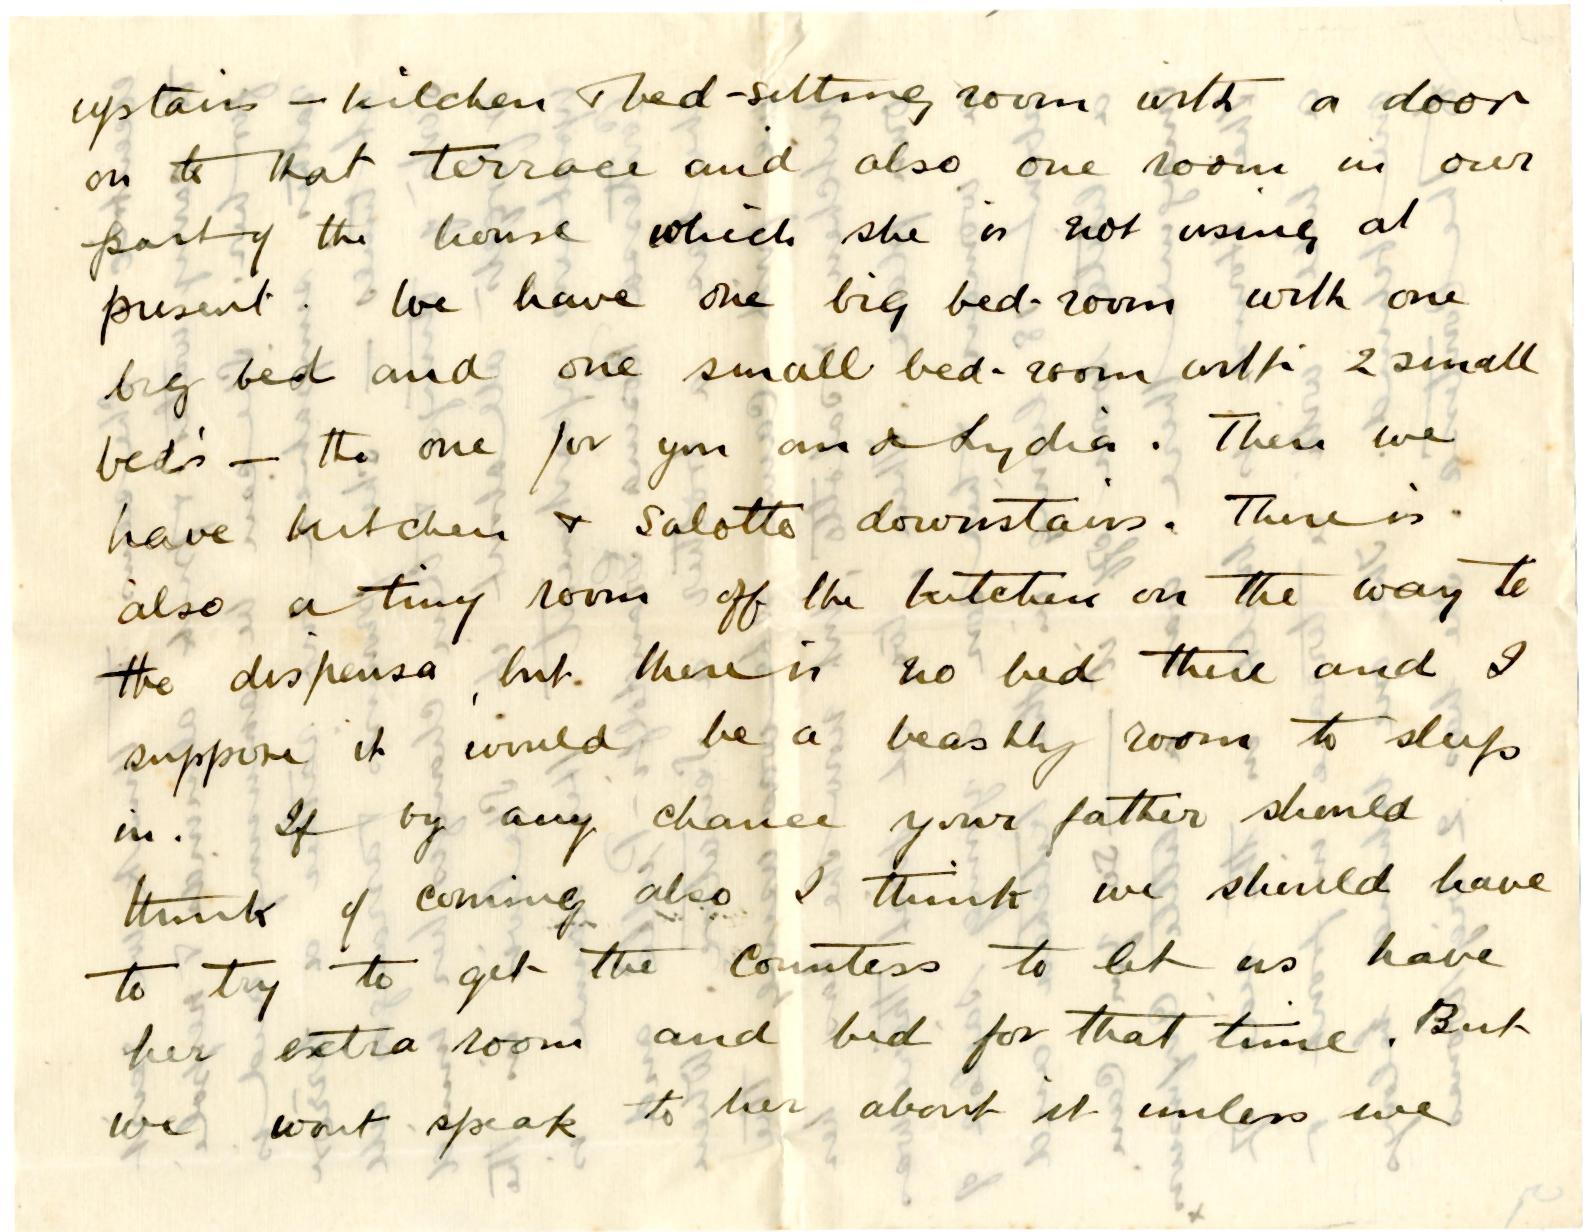 upstairs – kitchen & bed-sitting room with a door
on to that terrace and also one room in our
part of the house which she is not using at
present. We have one big bed-room with one
big bed and one small bed-room with 2 small
bed's – the one for you and Lydia. Then we
have kitchen & Salotto downstairs. There is
also a tiny room off the kitchen on the way to
the dispensa, but there is no bed there and I
suppose it would be a beastly room to sleep
in. If by any chance your father should
think of coming also I think we should have
to try to get the Countess to let us have
her extra room and bed for that time. But
we wont speak to her about it unless we